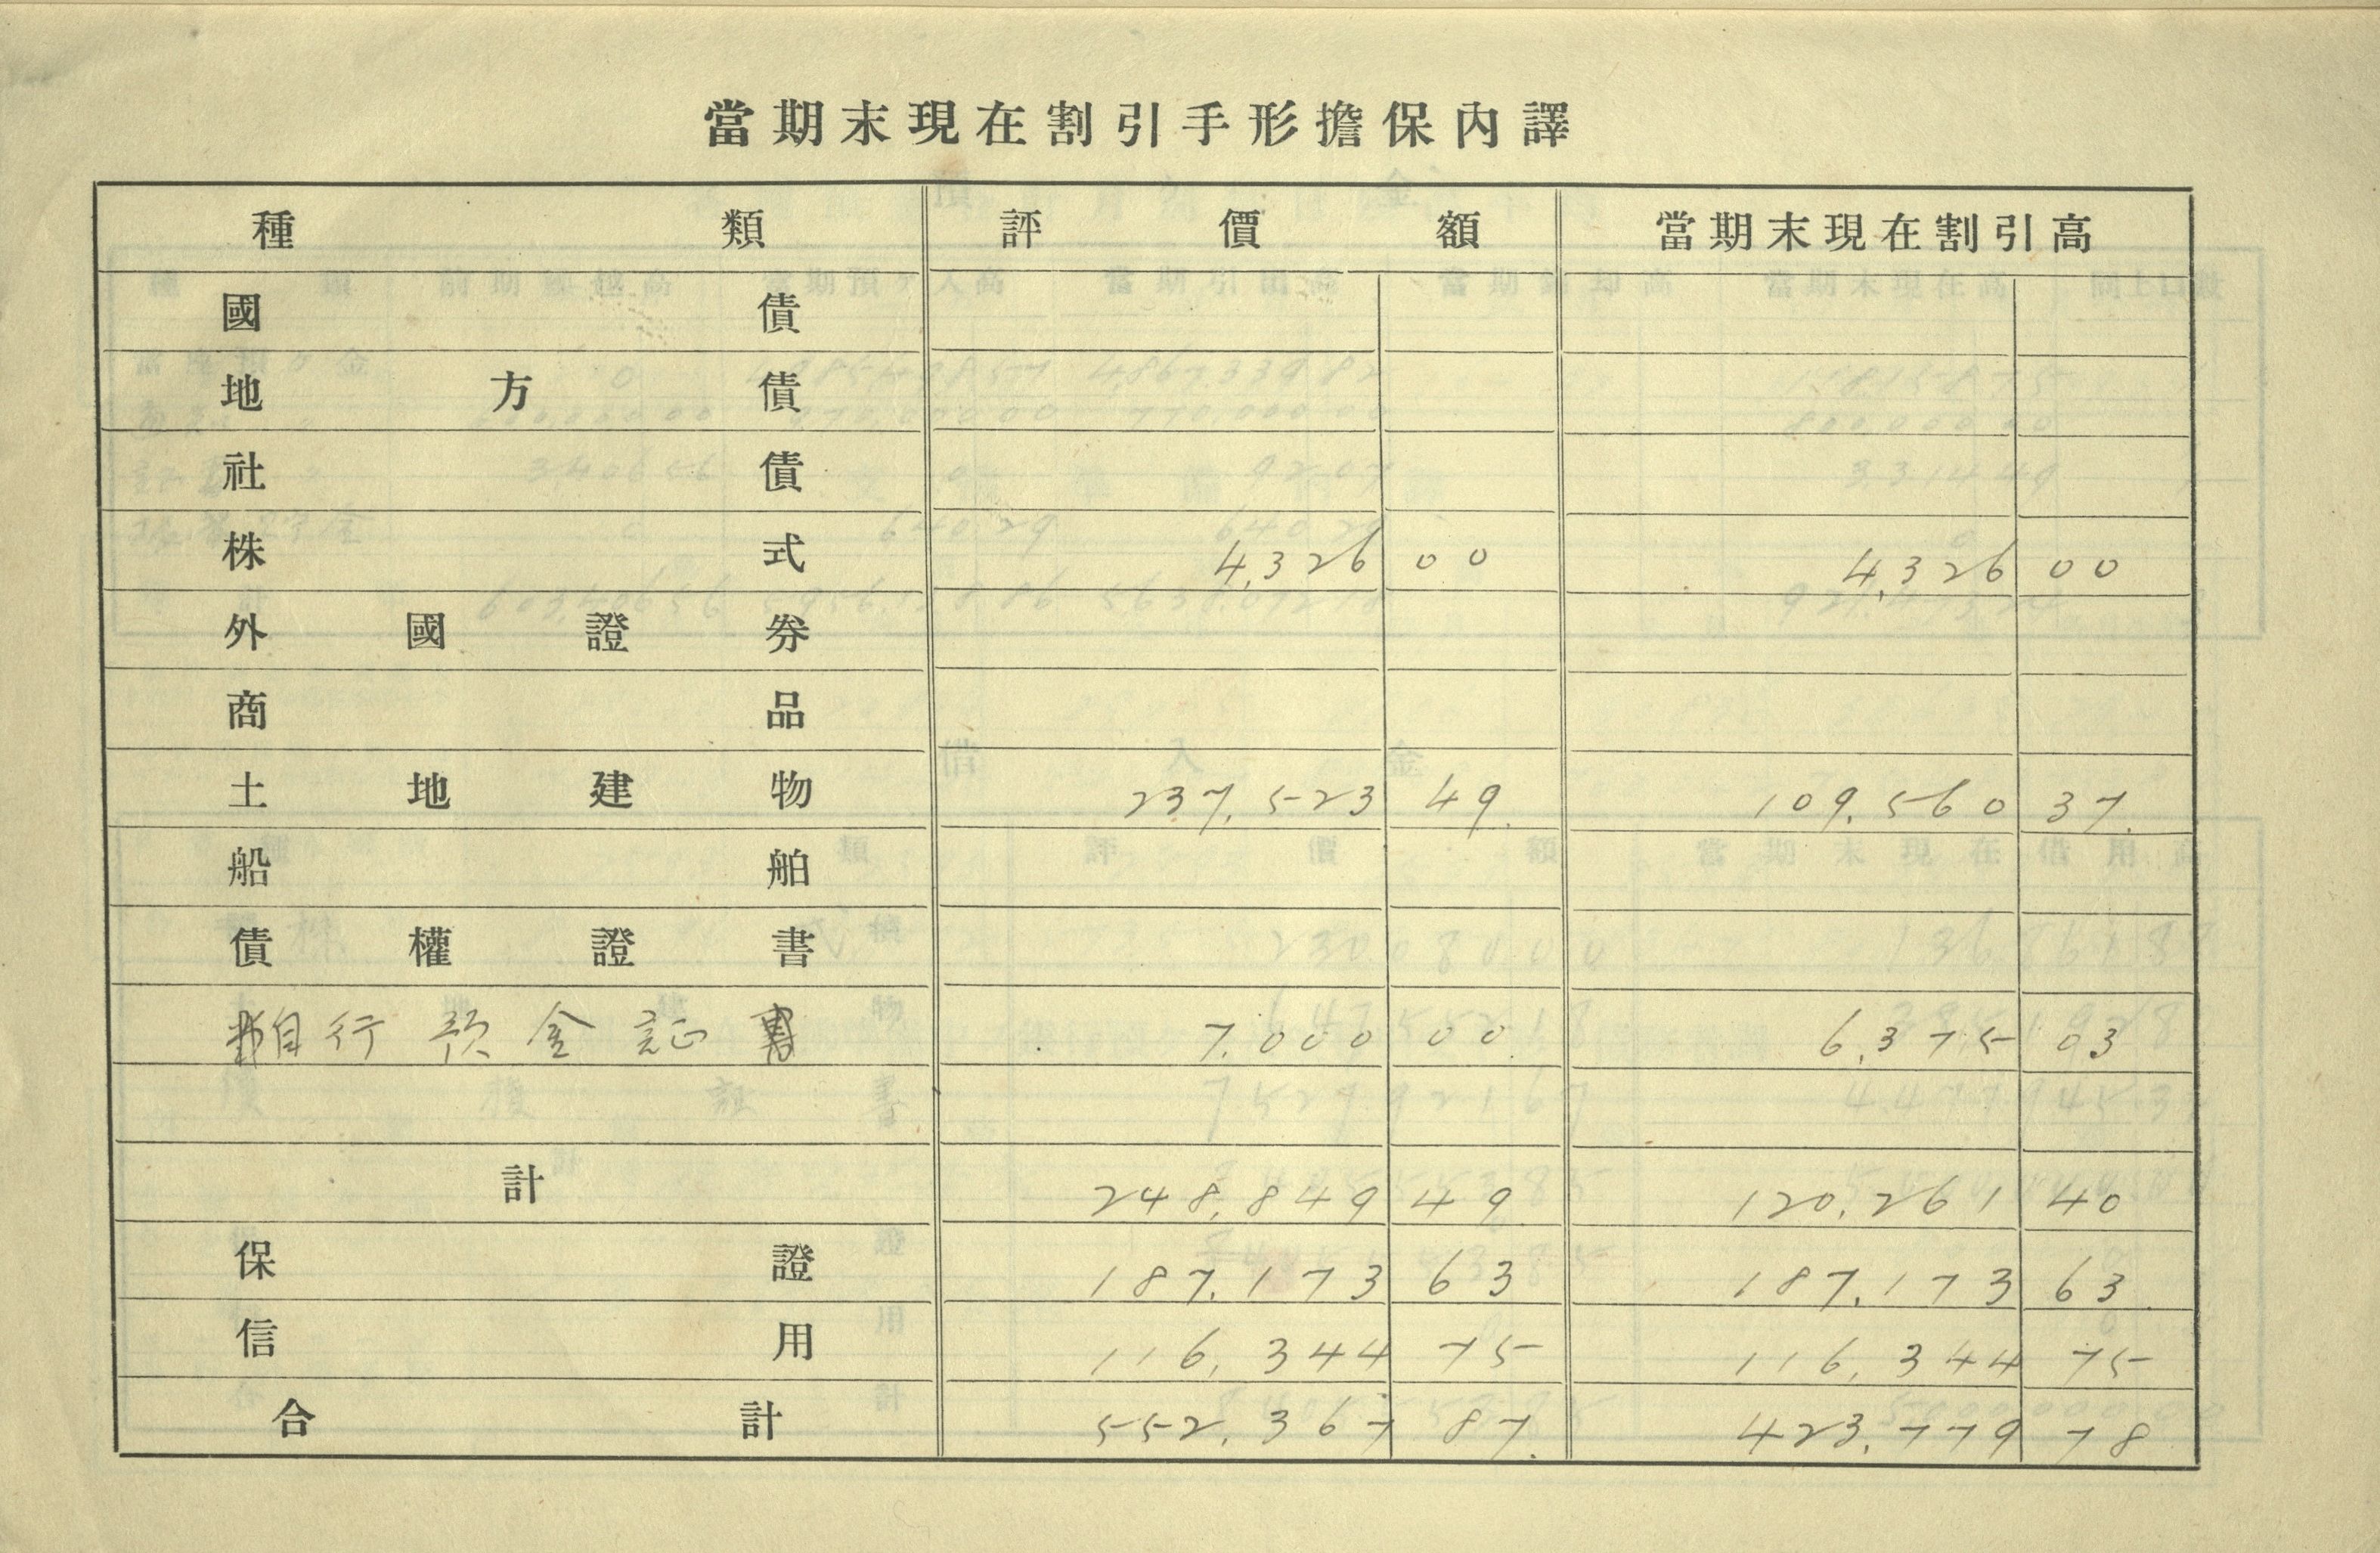 當期末現在割引手形擔保內譯
種類 評價額 當期末現在割引高
國債
地方債
社債
株式 4,326 00 4,326 00
外國證券
商品
土地建物 237,523 49 109,560 37
船舶
債權證書
自行預金証書 7,000 00 6,375 03
計 248,849 49 120,261 40
保證 187,173 63 187,173 63
信用 116,344 75 116,344 75
合計 552,367 87 423,779 78